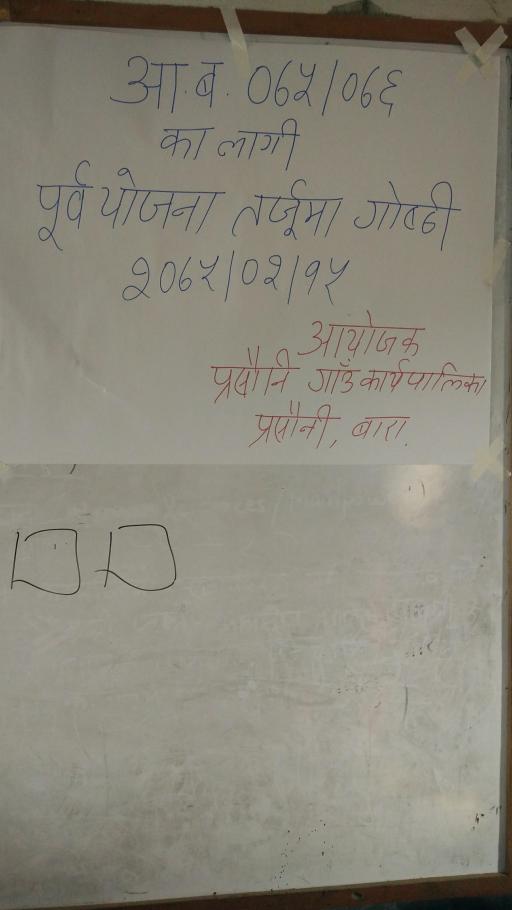 आ.ब. ०६५/०६६
का लागी
पूर्व योजना तर्जूमा गोष्ठी
२०६५/०२/१५
आयोजक
प्रसौनि गाँउ कार्यपालिका
प्रसौनी, बारा.